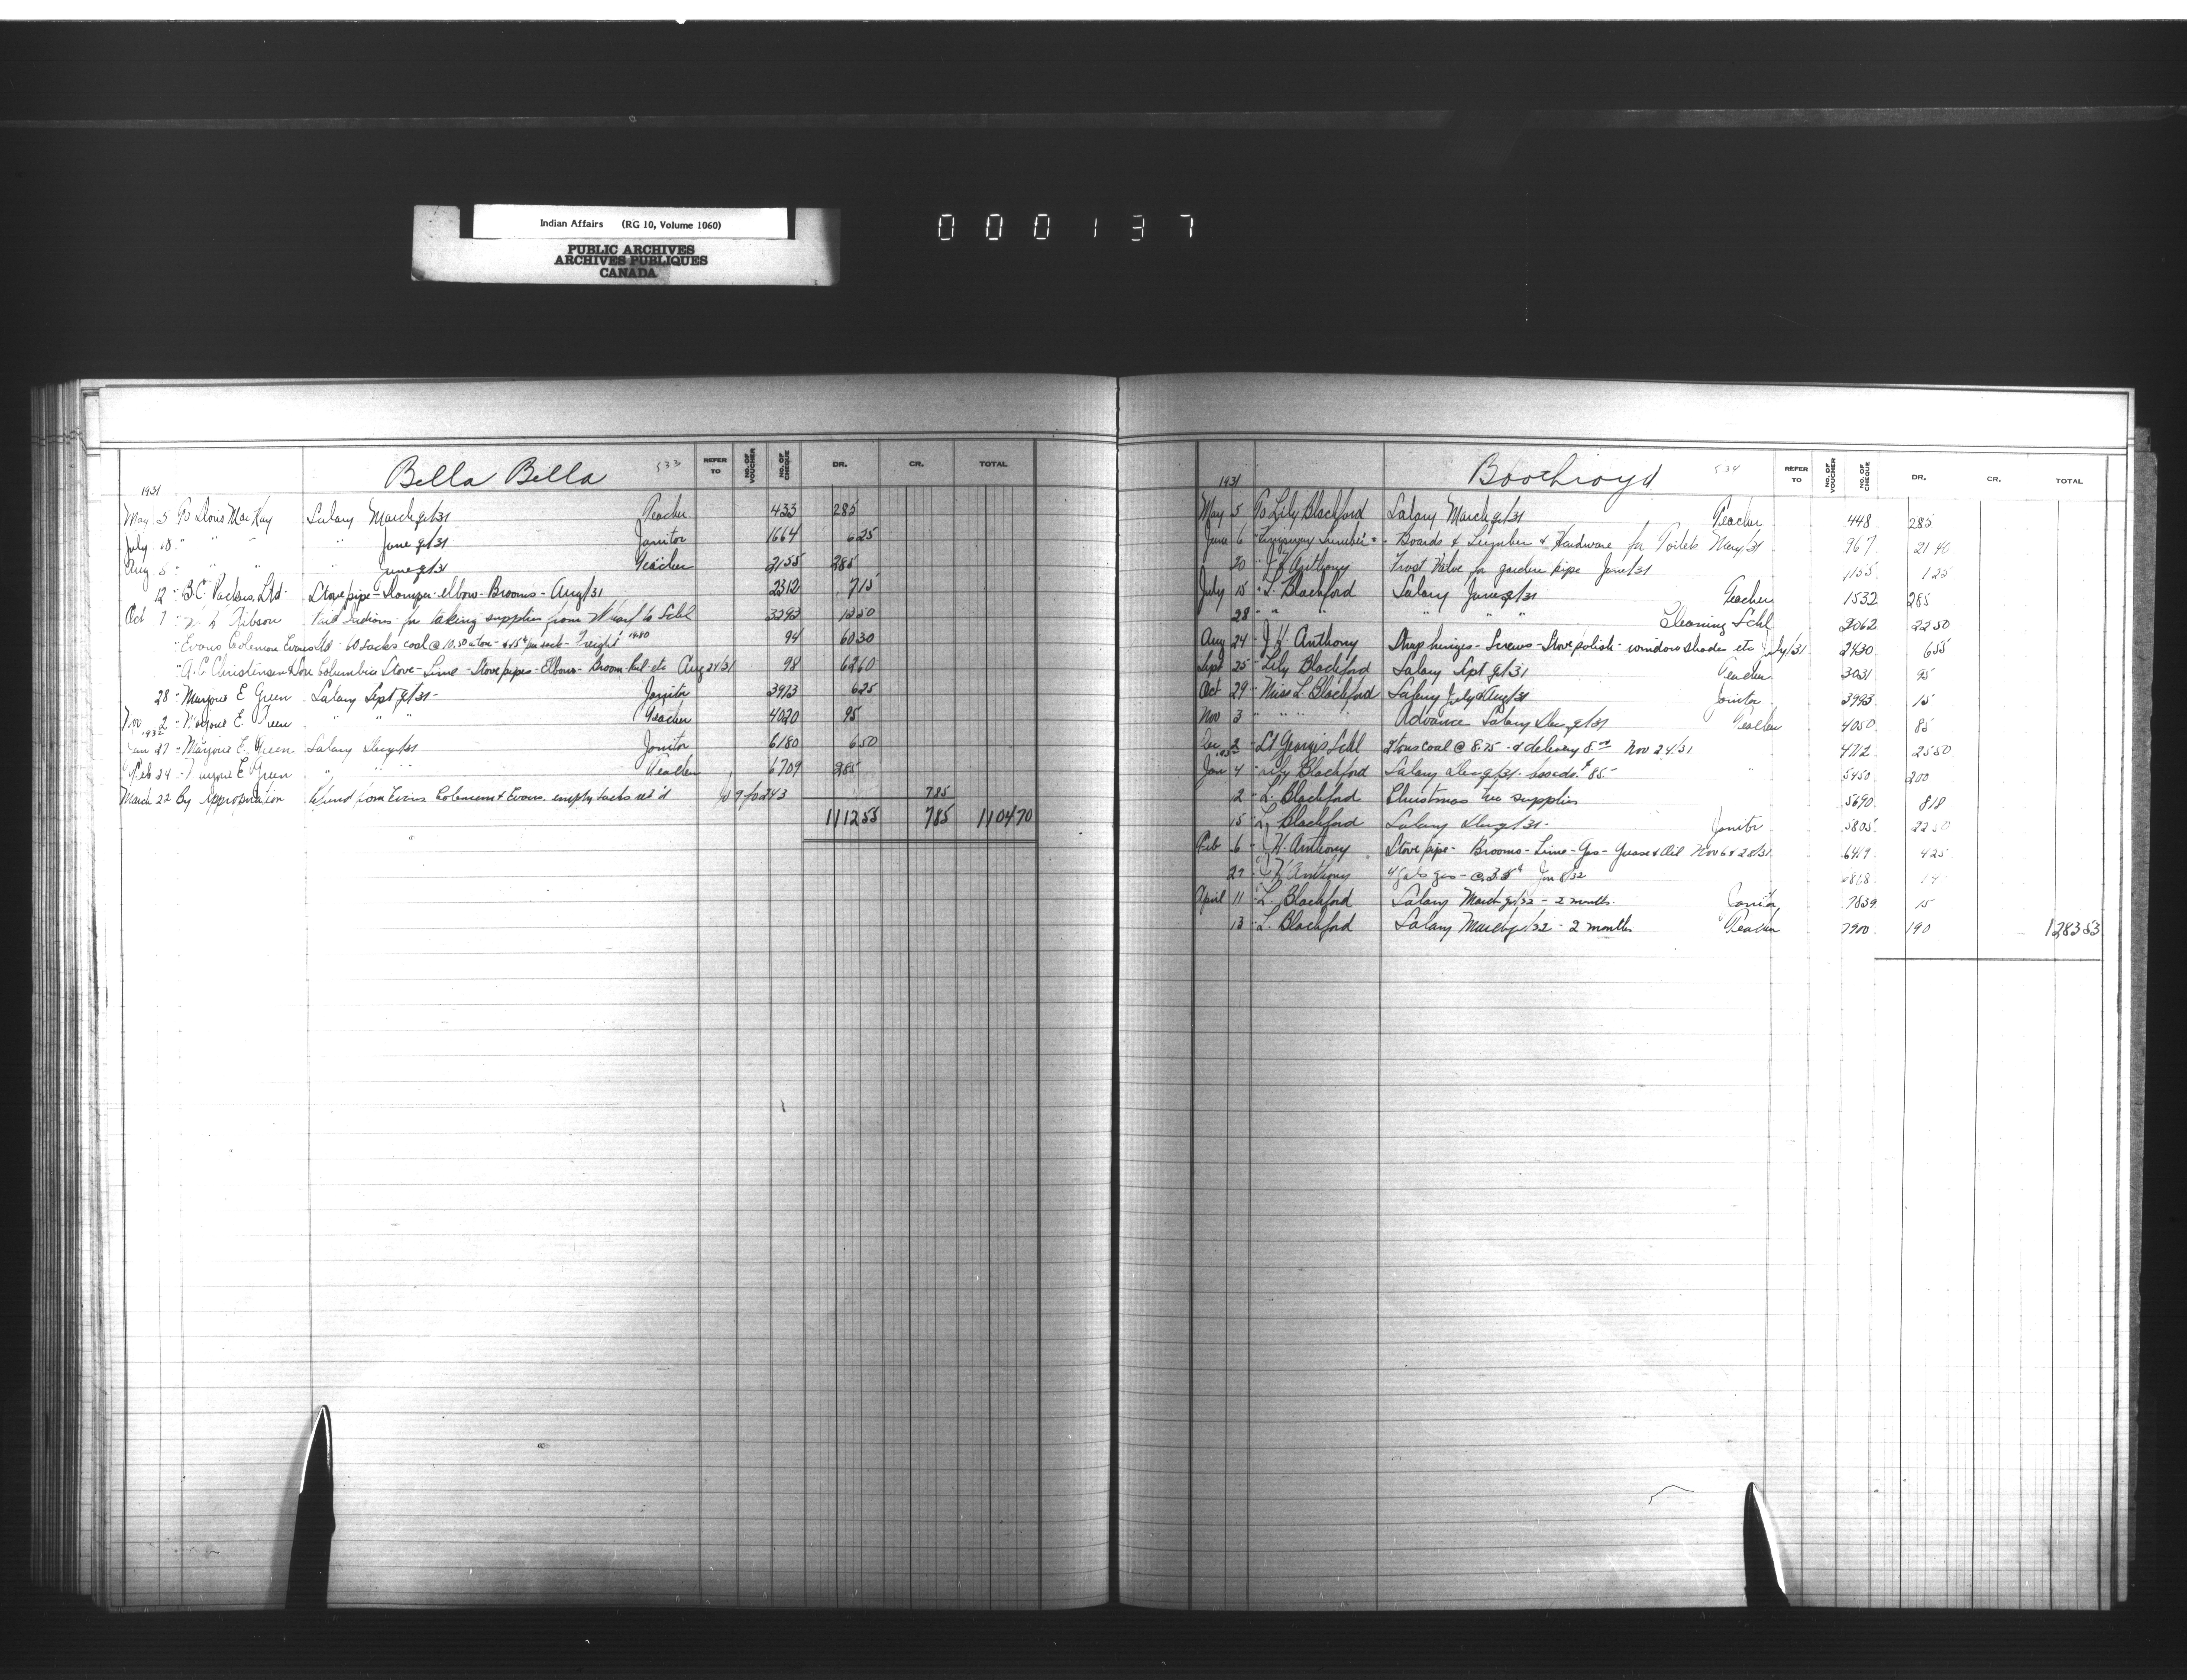 Indian Affairs (RG 10, Volume 1060)
PUBLIC ARCHIVES
ARCHIVES PUBLIQUES
CANADA
000137
Bella Bella 533 REFER TO NO. OF VOUCHER NO. OF CHEQUE DR. CR. TOTAL
1931
May 5 To Doris MacKay Salary March q/31 Teacher 433 285
July 18 " " " " June q/31 Janitor 1664 6 25
Aug 5 " " " June q/31 Teacher 2155 285
12 " B.C. Packers Ltd Stove pipe - Damper - elbow - Brooms - Aug/31 2312 7 15
Oct 7 " Gibson Indians for taking supplies from Wharf to Schl 3293 13 50
" Evans Coleman Evans Ltd - 60 sacks coal @ 10.50 a ton - + 15¢ per sack - Freight 14.80 94 60 30
" A.C. Christensen & Son Columbia Stove - Lime - Stove pipes - Elbow - Broom - Pail - etc Aug 24/31 98 62 60
28 - Marjorie E Green Salary Sept q/31 - Janitor 3973 6 25
Nov 2 - Marjorie E. Green " " " Teacher 4020 95
1932
Jan 27 - Marjorie E. Green Salary Dec q/31 Janitor 6180 6 50
Feb 24 - Marjorie E Green " " " Teacher 6709 285
March 22 By Appropriation Refund from Evans Coleman & Evans empty sacks ret'd 7 85
1112 55 7 85 1104 70
Boothroyd 534 REFER TO NO. OF VOUCHER NO. OF CHEQUE DR. CR. TOTAL
1931
May 5 To Lily Blachford Salary March q/31 Teacher 448 285
June 6 " Lumber " Boards & Lumber & Hardware for Toilets May/31 967 21 40
20 " J H Anthony Frost Valve for garden pipe June/31 1155 1 25
July 15 " L. Blachford Salary June q/31 Teacher 1532 285
28 " " " " " Cleaning Schl 2062 22 50
Aug 24 - J H Anthony Strap hinges - Screws - Stove polish - window shades etc July/31 2430 6 55
Sept 25 - Lily Blachford Salary Sept q/31 Teacher 3031 95
Oct 29 - Miss L. Blachford Salary July & Aug/31 Janitor 3993 15
Nov 3 " " " " Advance Salary Dec q/31 Teacher 4050 85
Dec 2 - St Georges Schl 2 tons coal @ 8.75 - & delivery 8.00 Nov 24/31 4712 25 50
1932
Jan 4 - Lily Blachford Salary Dec q/31 - less adv. $85 - " 5450 200
2 - L. Blachford Christmas tree supplies 5690 8 18
15 - L. Blachford Salary Dec q/31 - Janitor 5805 22 50
Feb 6 - J H. Anthony Stove pipe - Brooms - Lime - Gas - Grease & Oil Nov 6 & 28/31 6419 4 25
27 - J H Anthony 4 gals gas - @ 35¢ Jan 8/32
April 11 - L. Blachford Salary March q/32 - 2 months. Janitor 7839 15
13 - L. Blachford Salary March q/32 - 2 months Teacher 7900 190 1283 53